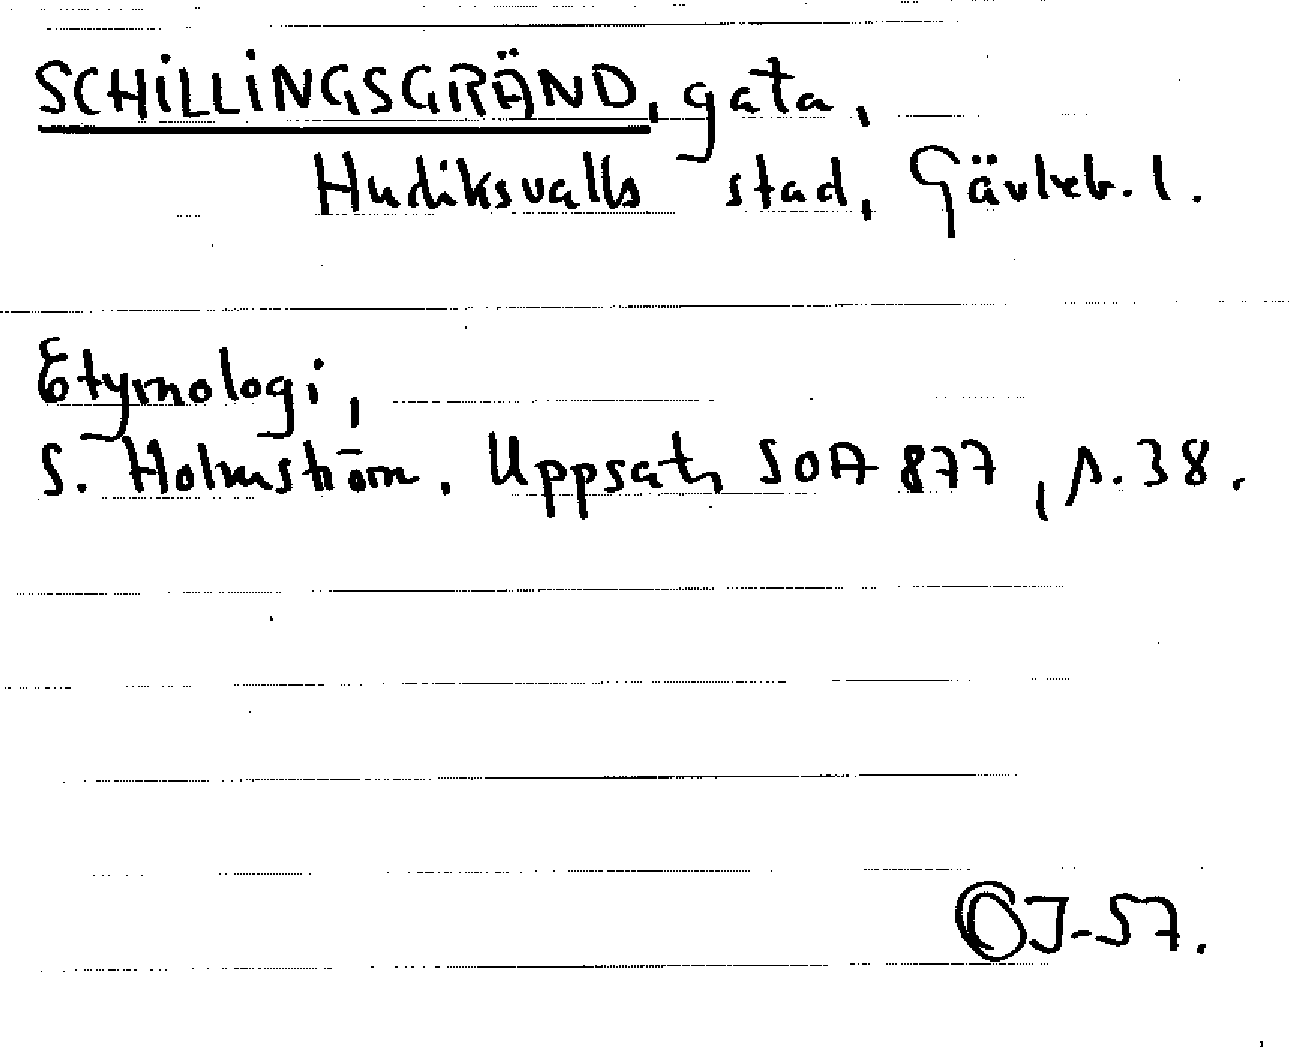 SCHILLINGSGRÄND, gata,
Hudiksvalls stad, Gävleb. l.
Etymologi,
S. Holmström, Uppsats SOA 877, s. 38.
OJ-57.